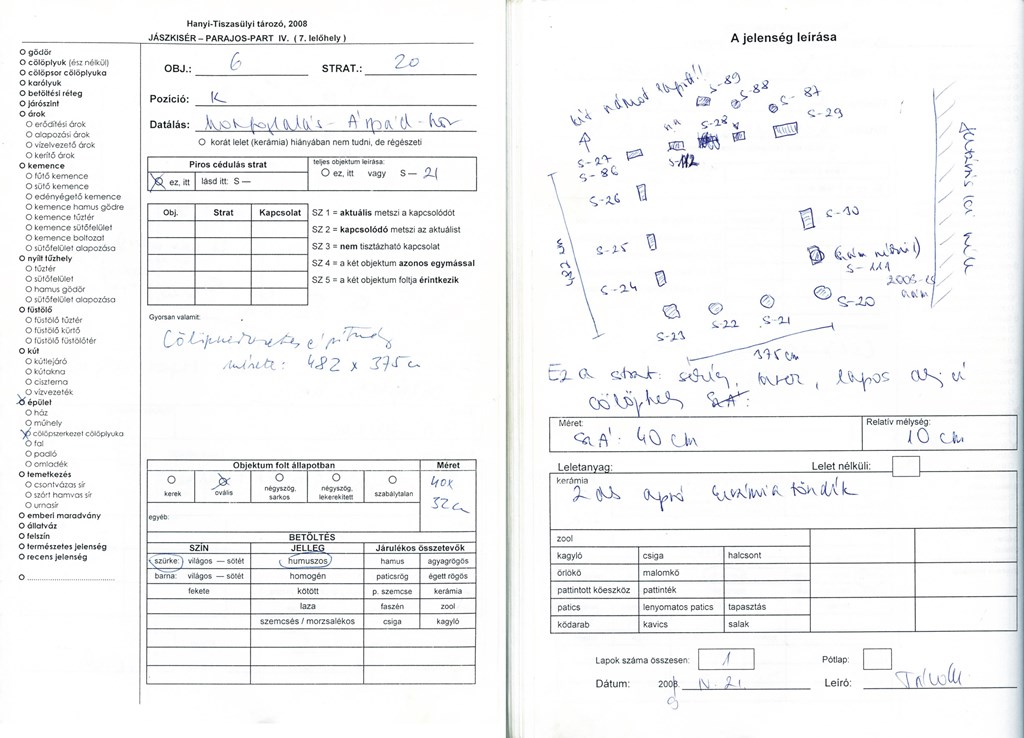 Hanyi-Tiszasülyi tározó, 2008
JÁSZKISÉR – PARAJOS-PART IV. ( 7. lelőhely )
O gödör
O cölöplyuk (ész nélkül)
O cölöpsor cölöplyuka
O karólyuk
O betöltési réteg
O járószint
O árok
O erődítési árok
O alapozási árok
O vízelvezető árok
O kerítő árok
O kemence
O fűtő kemence
O sütő kemence
O edényégető kemence
O kemence hamus gödre
O kemence tűztér
O kemence sütőfelület
O kemence boltozat
O sütőfelület alapozása
O nyílt tűzhely
O tűztér
O sütőfelület
O hamus gödör
O sütőfelület alapozása
O füstölő
O füstölő tűztér
O füstölő kürtő
O füstölő füstölőtér
O kút
O kútlejáró
O kútakna
O ciszterna
O vízvezeték
O épület
O ház
O műhely
O cölöpszerkezet cölöplyuka
O fal
O padló
O omladék
O temetkezés
O csontvázas sír
O szórt hamvas sír
O urnasír
O emberi maradvány
O állatváz
O felszín
O természetes jelenség
O recens jelenség
O
OBJ.: 6 STRAT.: 20
Pozíció: K
Datálás: Honfoglalás - Árpád-kor
O korát lelet (kerámia) hiányában nem tudni, de régészeti
Piros cédulás strat
ez, itt lásd itt: S —
teljes objektum leírása:
O ez, itt vagy S — 21
Obj. Strat Kapcsolat
SZ 1 = aktuális metszi a kapcsolódót
SZ 2 = kapcsolódó metszi az aktuálist
SZ 3 = nem tisztázható kapcsolat
SZ 4 = a két objektum azonos egymással
SZ 5 = a két objektum foltja érintkezik
Gyorsan valamit:
Cölöpszerkezetes építmény
mérete: 482 x 375 cm
Objektum folt állapotban Méret
kerek ovális négyszög, sarkos négyszög, lekerekített szabálytalan
40x
32 cm
egyéb:
BETÖLTÉS
SZÍN JELLEG Járulékos összetevők
szürke: világos — sötét humuszos hamus agyagrögös
barna: világos — sötét homogén paticsrög égett rögös
fekete kötött p. szemcse kerámia
laza faszén zool
szemcsés / morzsalékos csiga kagyló
A jelenség leírása
S-89
S-88
S-87
S-29
S-28
S-27
S-86
S-112
S-26
S-30
S-25
S-111
S-24
S-20
S-23
S-22
S-21
375 cm
Ez a strat: sekély, lapos alj ú
Méret: SZÁ: 40 cm
Relatív mélység: 10 cm
Leletanyag: Lelet nélküli:
kerámia
2 db apró kerámia töredék
zool
kagyló csiga halcsont
őrlőkő malomkő
pattintott kőeszköz pattinték
patics lenyomatos patics tapasztás
kődarab kavics salak
Lapok száma összesen: 1 Pótlap:
Dátum: 2008. IV. 21. Leíró:
9